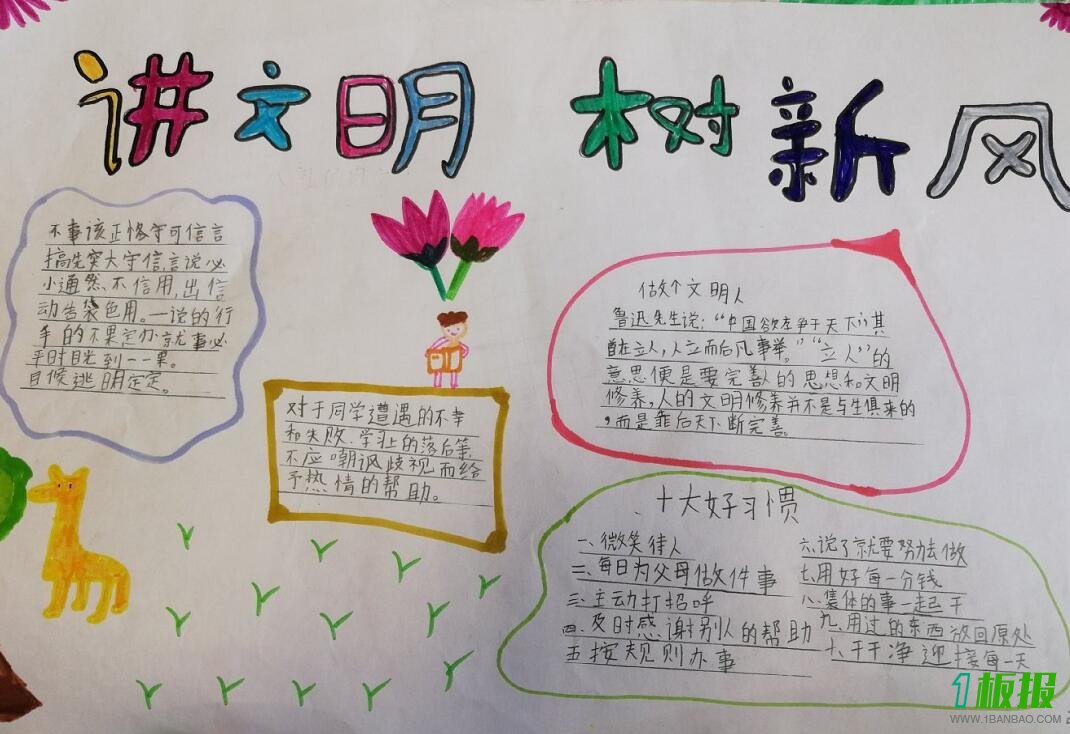 讲文明 树新风
不事该正恪守可信言
搞先突大守信,言说必
小通然、不信用,出信
动告袋色用。一说的行
手的不果定办就事必
平时目光到一一果。
目候逃明定定。
对于同学遭遇的不幸
和失败、学业的落后等
不应嘲讽歧视而给
予热情的帮助。
做个文明人
鲁迅先生说:“中国欲存争于天下,其
首在立人,人立而后凡事举。”“立人”的
意思便是要完善人的思想和文明
修养,人的文明修养并不是与生俱来的
,而是靠后天不断完善。
十大好习惯
一、微笑待人
二、每日为父母做件事
三、主动打招呼
四、及时感谢别人的帮助
五按规则办事
六、说了就要努力去做
七、用好每一分钱
八、集体的事一起干
九、用过的东西放回原处
十、干干净迎接每一天
1板报
WWW.1BANBAO.COM